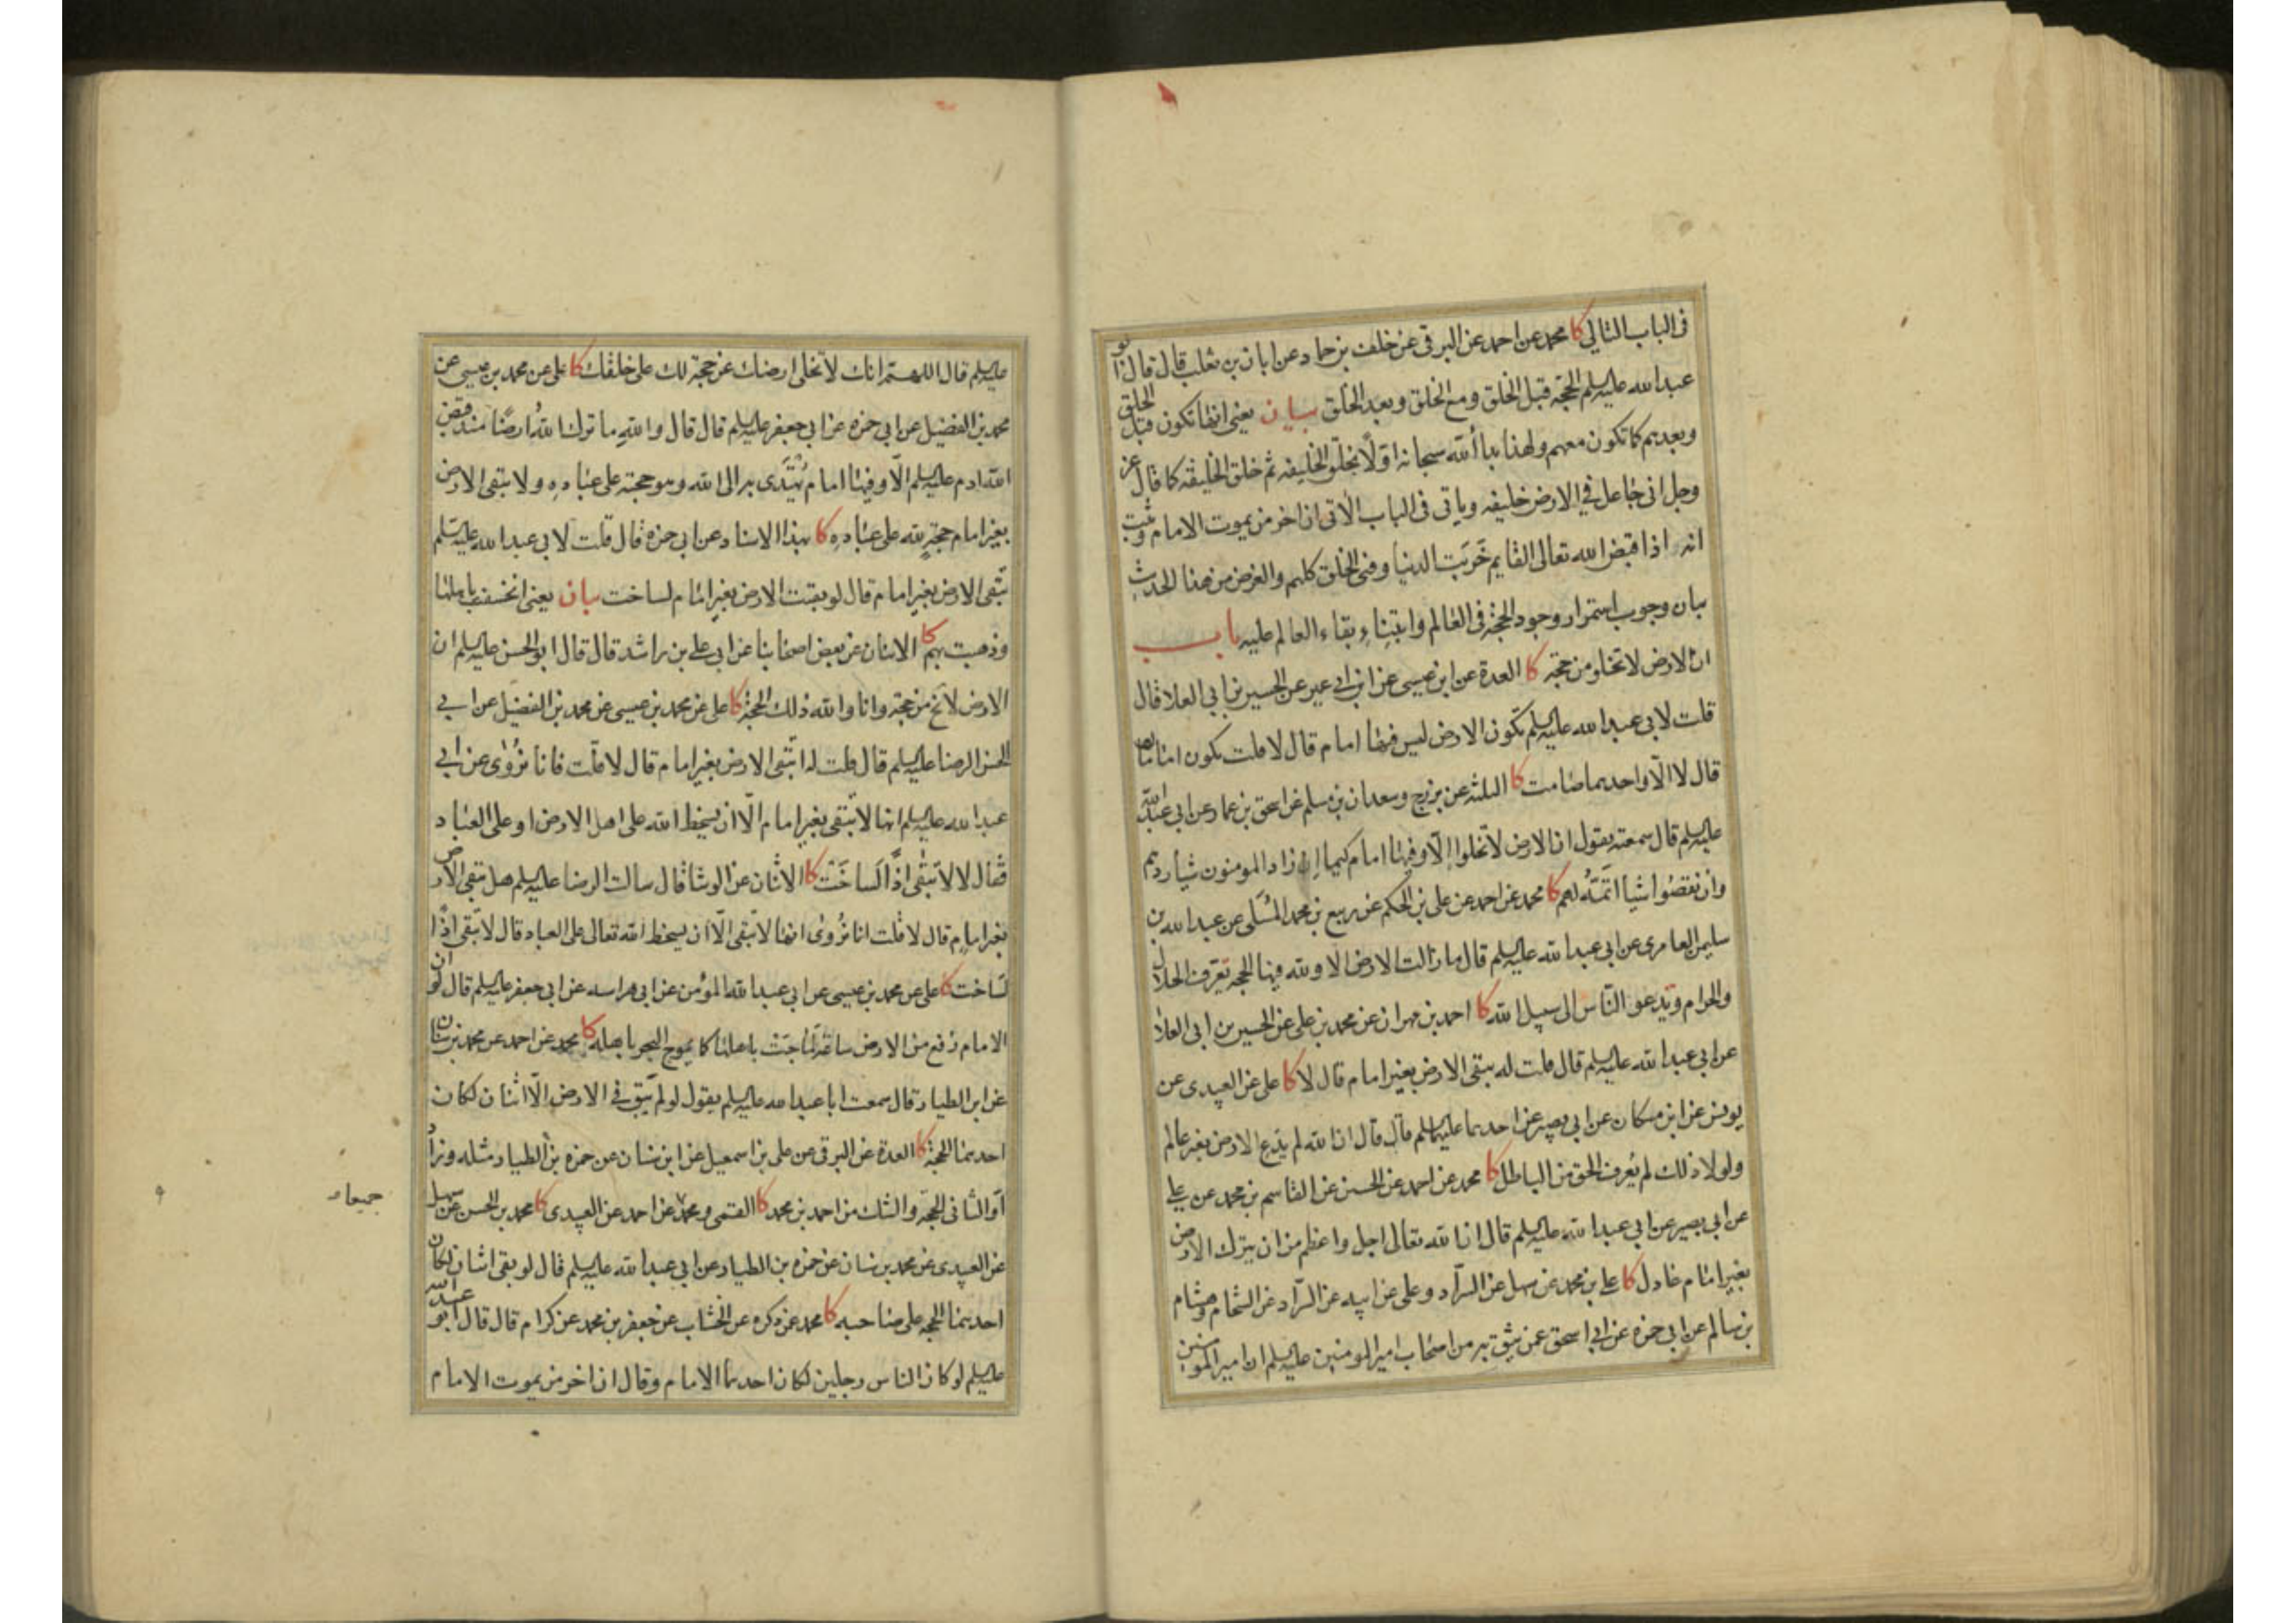 فى الباب التالي كا محمد عن احمد عن البرقى عن خلف بن حماد عن ابان بن تغلب قال قال ابو
عبدالله عليه السلم الحجة قبل الخلق ومع الخلق وبعد الخلق بيان يعنى انها تكون قبل الخلق
وبعدهم كما تكون معهم ولهذا بدا الله سبحانه اولا بخلق الخليفه ثم خلق الخليقه كما قال عز
وجل انى جاعل في الارض خليفه وياتى فى الباب الاتى ان اخر من يموت الامام وثبت
انه اذا قبض الله تعالى القايم خربت الدنيا وفنى الخلق كلهم والغرض من هذا الحديث
بيان وجوب استمرار وجود الحجة فى العالم وابتناء بقاء العالم عليه باب
ان الارض لا تخلو من حجة كا العدة عن ابن عيسى عن ابن ابى عمير عن الحسين بن ابي العلا قال
قلت لابى عبدالله عليه السلم تكون الارض ليس فيها امام قال لا قلت يكون امامان
قال لا الا واحدهما صامت كا الثلثه عن بزرج وسعدان بن مسلم عن اسحق بن عمار عن ابى عبدالله
عليه السلم قال سمعته يقول ان الارض لا تخلوا الا وفيها امام كيما ان زاد المومنون شيأ ردهم
وان نقصوا شيأ اتمه لهم كا محمد عن احمد عن على بن الحكم عن ربيع بن محمد المسلى عن عبدالله بن
سليمن العامرى عن ابى عبدالله عليه السلم قال ما زالت الارض الا ولله فيها الحجه تعرف الحلال
والحرام وتدعو الناس الى سبيل الله كا احمد بن مهران عن محمد بن على عن الحسين بن ابى العلا
عن ابى عبدا لله عليه السلم قال قلت له تبقى الارض بغير امام قال لا كا على عن العبيدى عن
يونس عن ابن مسكان عن ابى بصير عن احدهما عليهما السلم قال قال ان الله لم يدع الارض بغير عالم
ولولا ذلك لم يعرف الحق من الباطل كا محمد عن احمد عن الحسين عن القاسم بن محمد عن على
عن ابى بصير عن ابى عبدا لله عليه السلم قال ان الله تعالى اجل واعظم من ان يترك الارض
بغير امام عادل كا علي بن محمد عن سهل عن السراد وعلى عن ابيه عن السراد عن الشحام وهشام
بن سالم عن ابى حمزه عن ابى اسحق عمن يثق به من اصحاب امير المومنين عليه السلم ان امير المومنين
عليه السلم قال اللهم انك لا تخلى ارضك عن حجة لك على خلقك كا على عن محمد بن عيسى عن
محمد بن الفضيل عن ابى حمزه عن ابى جعفر عليه السلم قال قال والله ما ترك الله ارضا منذ قبض
الله ادم عليه السلم الا وفيها امام يهتدى به الى الله وهو حجته على عباده ولا تبقى الارض
بغير امام حجة لله على عباده كا بهذا الاسناد عن ابى حمزه قال قلت لابى عبدالله عليه السلم
تبقى الارض بغير امام قال لو بقيت الارض بغير امام لساخت بيان يعنى انخسفت باهلها
وذهبت بهم كا الاثنان عن بعض اصحابنا عن ابى علي بن راشد قال قال ابو الحسن عليه السلم ان
الارض لا تخ من حجة وانا والله ذلك الحجة كا على عن محمد بن عيسى عن محمد بن الفضيل عن ابي
الحسن الرضا عليه السلم قال قلت له اتبقى الارض بغير امام قال لا قلت فانا نروى عن ابي
عبدالله عليه السلم انها لا تبقى بغير امام الا ان يسخط الله على اهل الارض او على العباد
فقال لا لا تبقى اذا لساخت كا الاثنان عن الوشا قال سالت الرضا عليه السلم هل تبقى الارض
بغير امام قال لا قلت انا نروى انها لا تبقى الا ان يسخط الله تعالى على العباد قال لا تبقى اذا
لساخت كا على عن محمد بن عيسى عن ابى عبدا لله المومن عن ابى هراسه عن ابى جعفر عليه السلم قال لو ان
الامام رفع من الارض ساعة لماجت باهلها كما يموج البحر باهله كا محمد عن احمد عن محمد بن سنان
عن ابن الطيار قال سمعت ابا عبدالله عليه السلم يقول لو لم يبق في الارض الا اثنان لكان
احدهما الحجة كا العدة عن البرقى عن على بن اسمعيل عن ابن سنان عن حمزه بن الطيار مثله وزاد
او الثانى الحجة والشك من احمد بن محمد كا القمى ومحمد عن احمد عن العبيدى كا محمد بن الحسن عن سهل
جميعا
عن العبيدى عن محمد بن سنان عن حمزه بن الطيار عن ابى عبدا لله عليه السلم قال لو بقى اثنان لكان
احدهما الحجه على صاحبه كا محمد عن ذكره عن الخشاب عن جعفر بن محمد عن كرام قال قال ابو عبدالله
عليه السلم لو كان الناس رجلين لكان احدهما الامام وقال ان اخر من يموت الامام